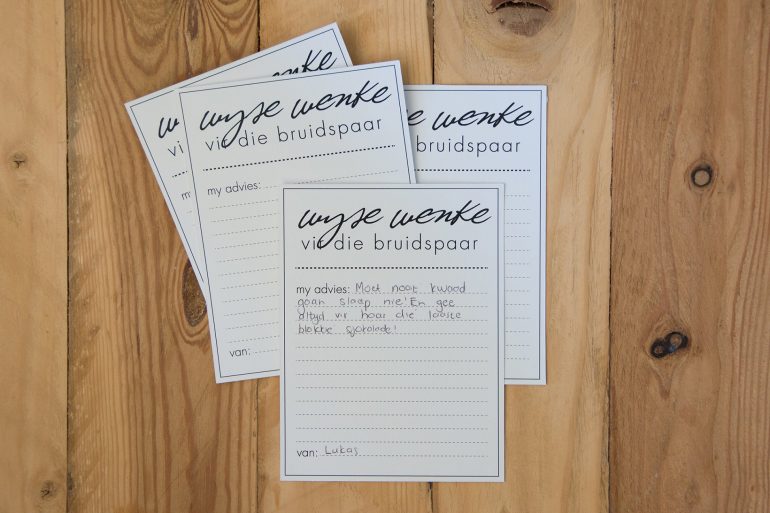 wyse wenke
w
wyse wenke
vir die bruidspaar
my advies:
van:
wenke
bruidspaar
wyse wenke
vir die bruidspaar
my advies: Moet nooit kwaad
gaan slaap nie! En gee
altyd vir haar die laaste
blokkie sjokolade!
van: Lukas